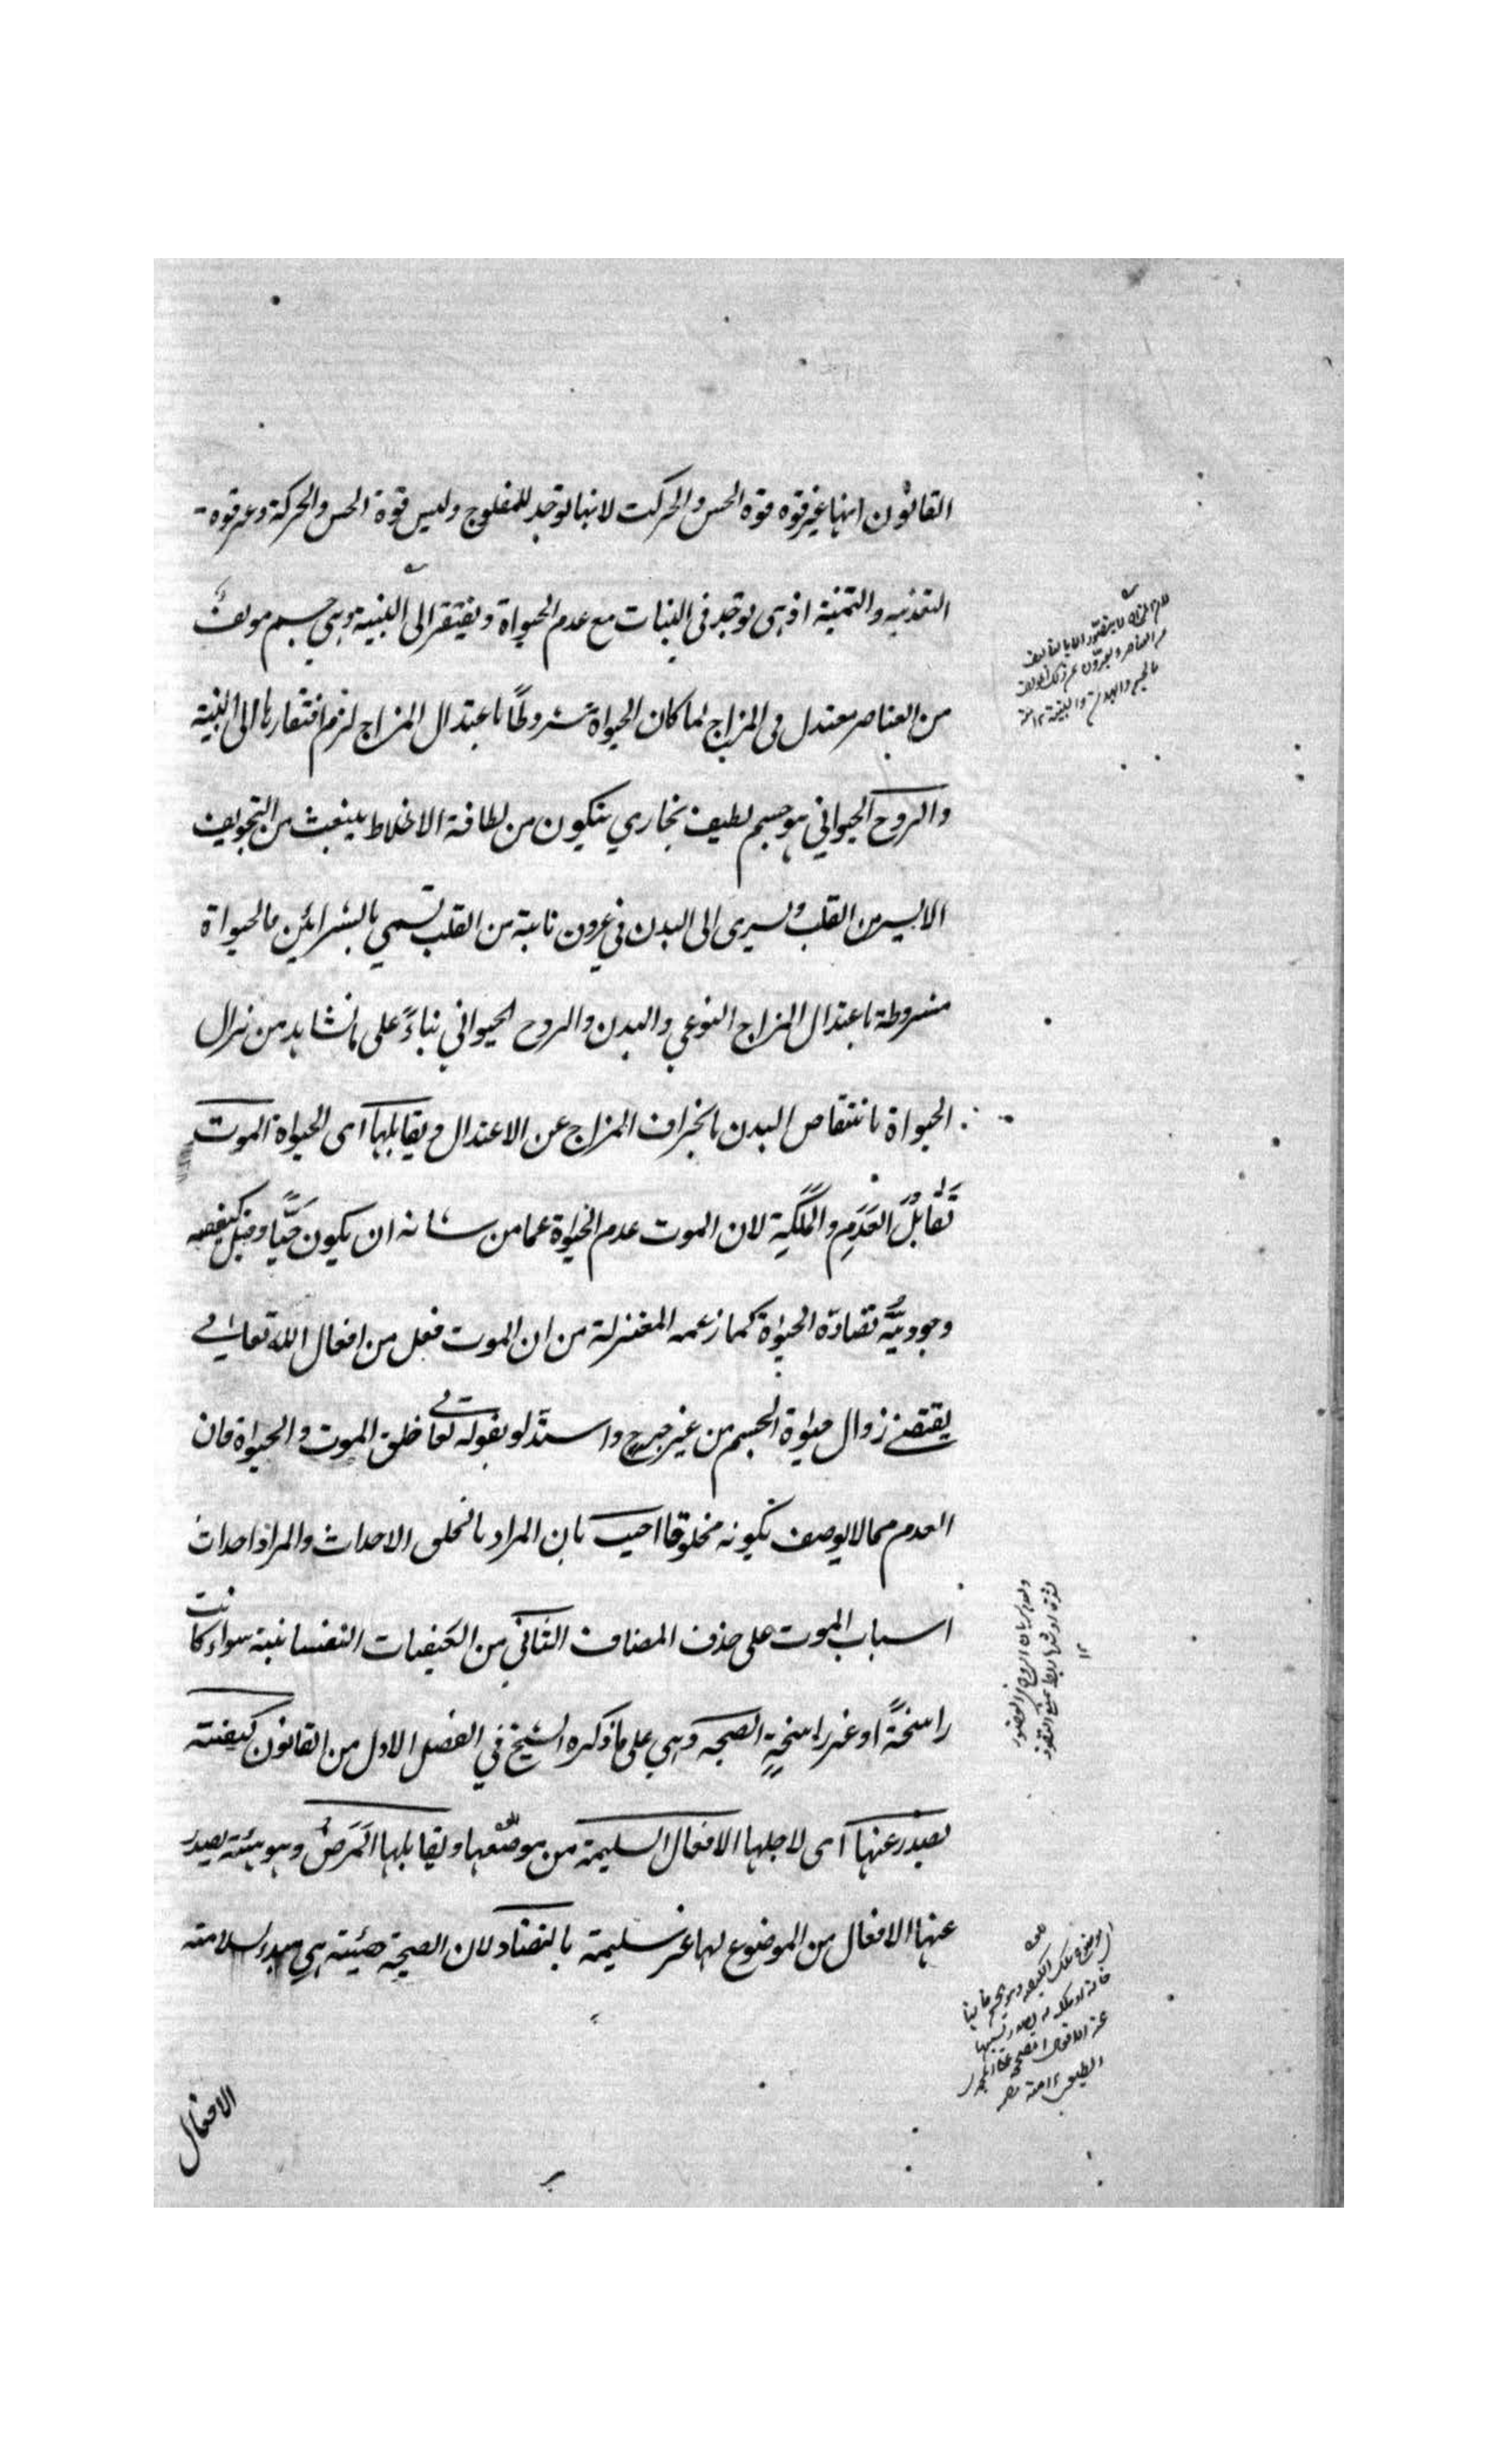 القانون انها غير قوه قوه الحس والحركت لانها توجد للمفلوج وليس قوة الحس والحركة وغر قوه
التغذيه والتمنية اذ هى توجد فى النبات مع عدم الحيواة ويفتقر الى البنية وهي جسم مولف
من العناصر معتدل فى المزاج لما كان الحيواة مشروطًا باعتدال المزاج لزم افتقارها الى البنية
والروح الحيواني هو جسم لطيف بخاري يتكون من لطافة الاخلاط ينبعث من التجويف
الايسر من القلب ويسرى الى البدن في عروق نابتة من القلب تسمي بالشرائين فالحيواة
مشروطة باعتدال المزاج النوعي والبدن والروح الحيواني بناءً على ما نشاهد من زوال
الحيواة بانتقاص البدن بانحراف المزاج عن الاعتدال ويقابلها اى الحيواة الموت
تَقابُلَ العَدَمِ والمَلَكَةِ لان الموت عدم الحيواة عما من شانه ان يكون حَيًّا وقيل كيفية
وجوديَّة تضادّه الحيواة كما زعمه المعتزلة من ان الموت فعل من افعال الله تعالى
يقتضے زوال حيواة الجسم من غير جرح واستدلو بقوله تعالى خلق الموت والحيواة فان
العدم مما لا يوصف بكونه مخلوقا اجيب بان المراد بالخلق الاحداث والمراد احداث
اسباب الموت على حذف المضاف الثاني من الكيفيات النفسانية سواء كانت
راسخةً او غير راسخةٍ الصحه وهي على ما ذكره الشيخ في الفصل الاول من القانون كيفيته
يصدر عنها اى لاجلها الافعال السليمة من موضعها ويقابلها المَرَضُ وهو هيئة يصدر
عنها الافعال من الموضوع لها غر سليمة بالتضاد لان الصحة هيئته هي مبدء سلامته
الافعال